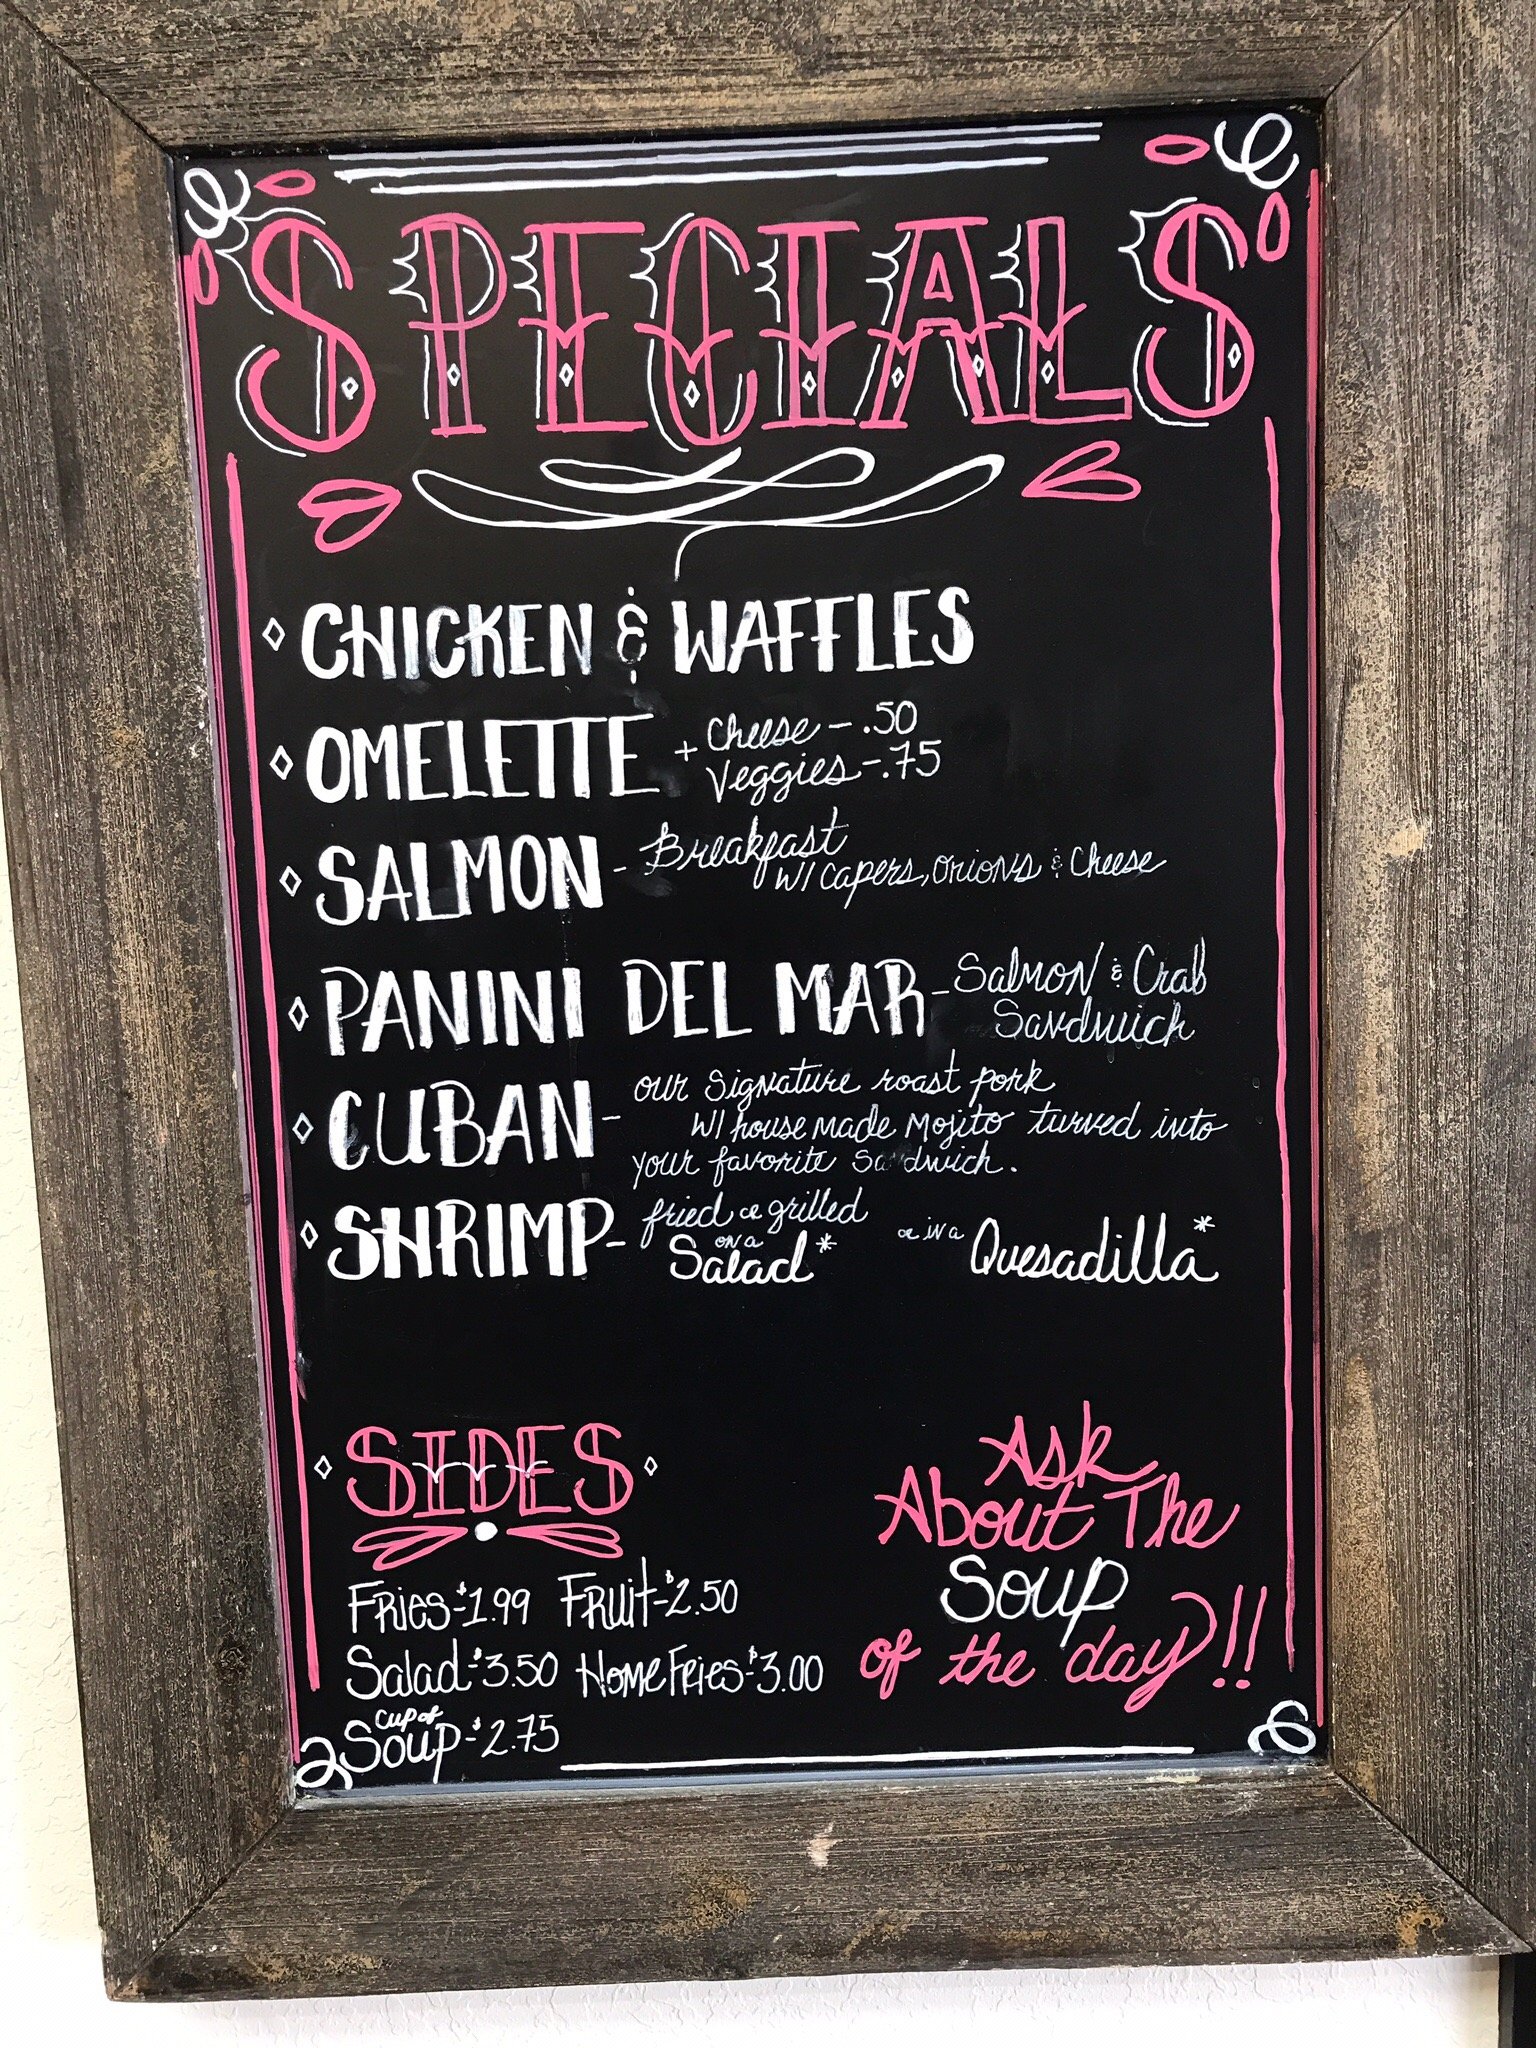 SPECIALS
CHICKEN & WAFFLES
OMELETTE + Cheese - .50
Veggies - .75
SALMON - Breakfast
W/ Capers, Onions & Cheese
PANINI DEL MAR - Salmon & Crab
Sandwich
CUBAN - our signature roast pork
W/ house made Mojito turned into
your favorite Sandwich.
SHRIMP - fried or grilled
on a Salad* or in a Quesadilla*
SIDES
Fries - $1.99 Fruit - $2.50
Salad - $3.50 Home Fries - $3.00
Cup of
Soup - $2.75
Ask
About The
Soup
of the day!!